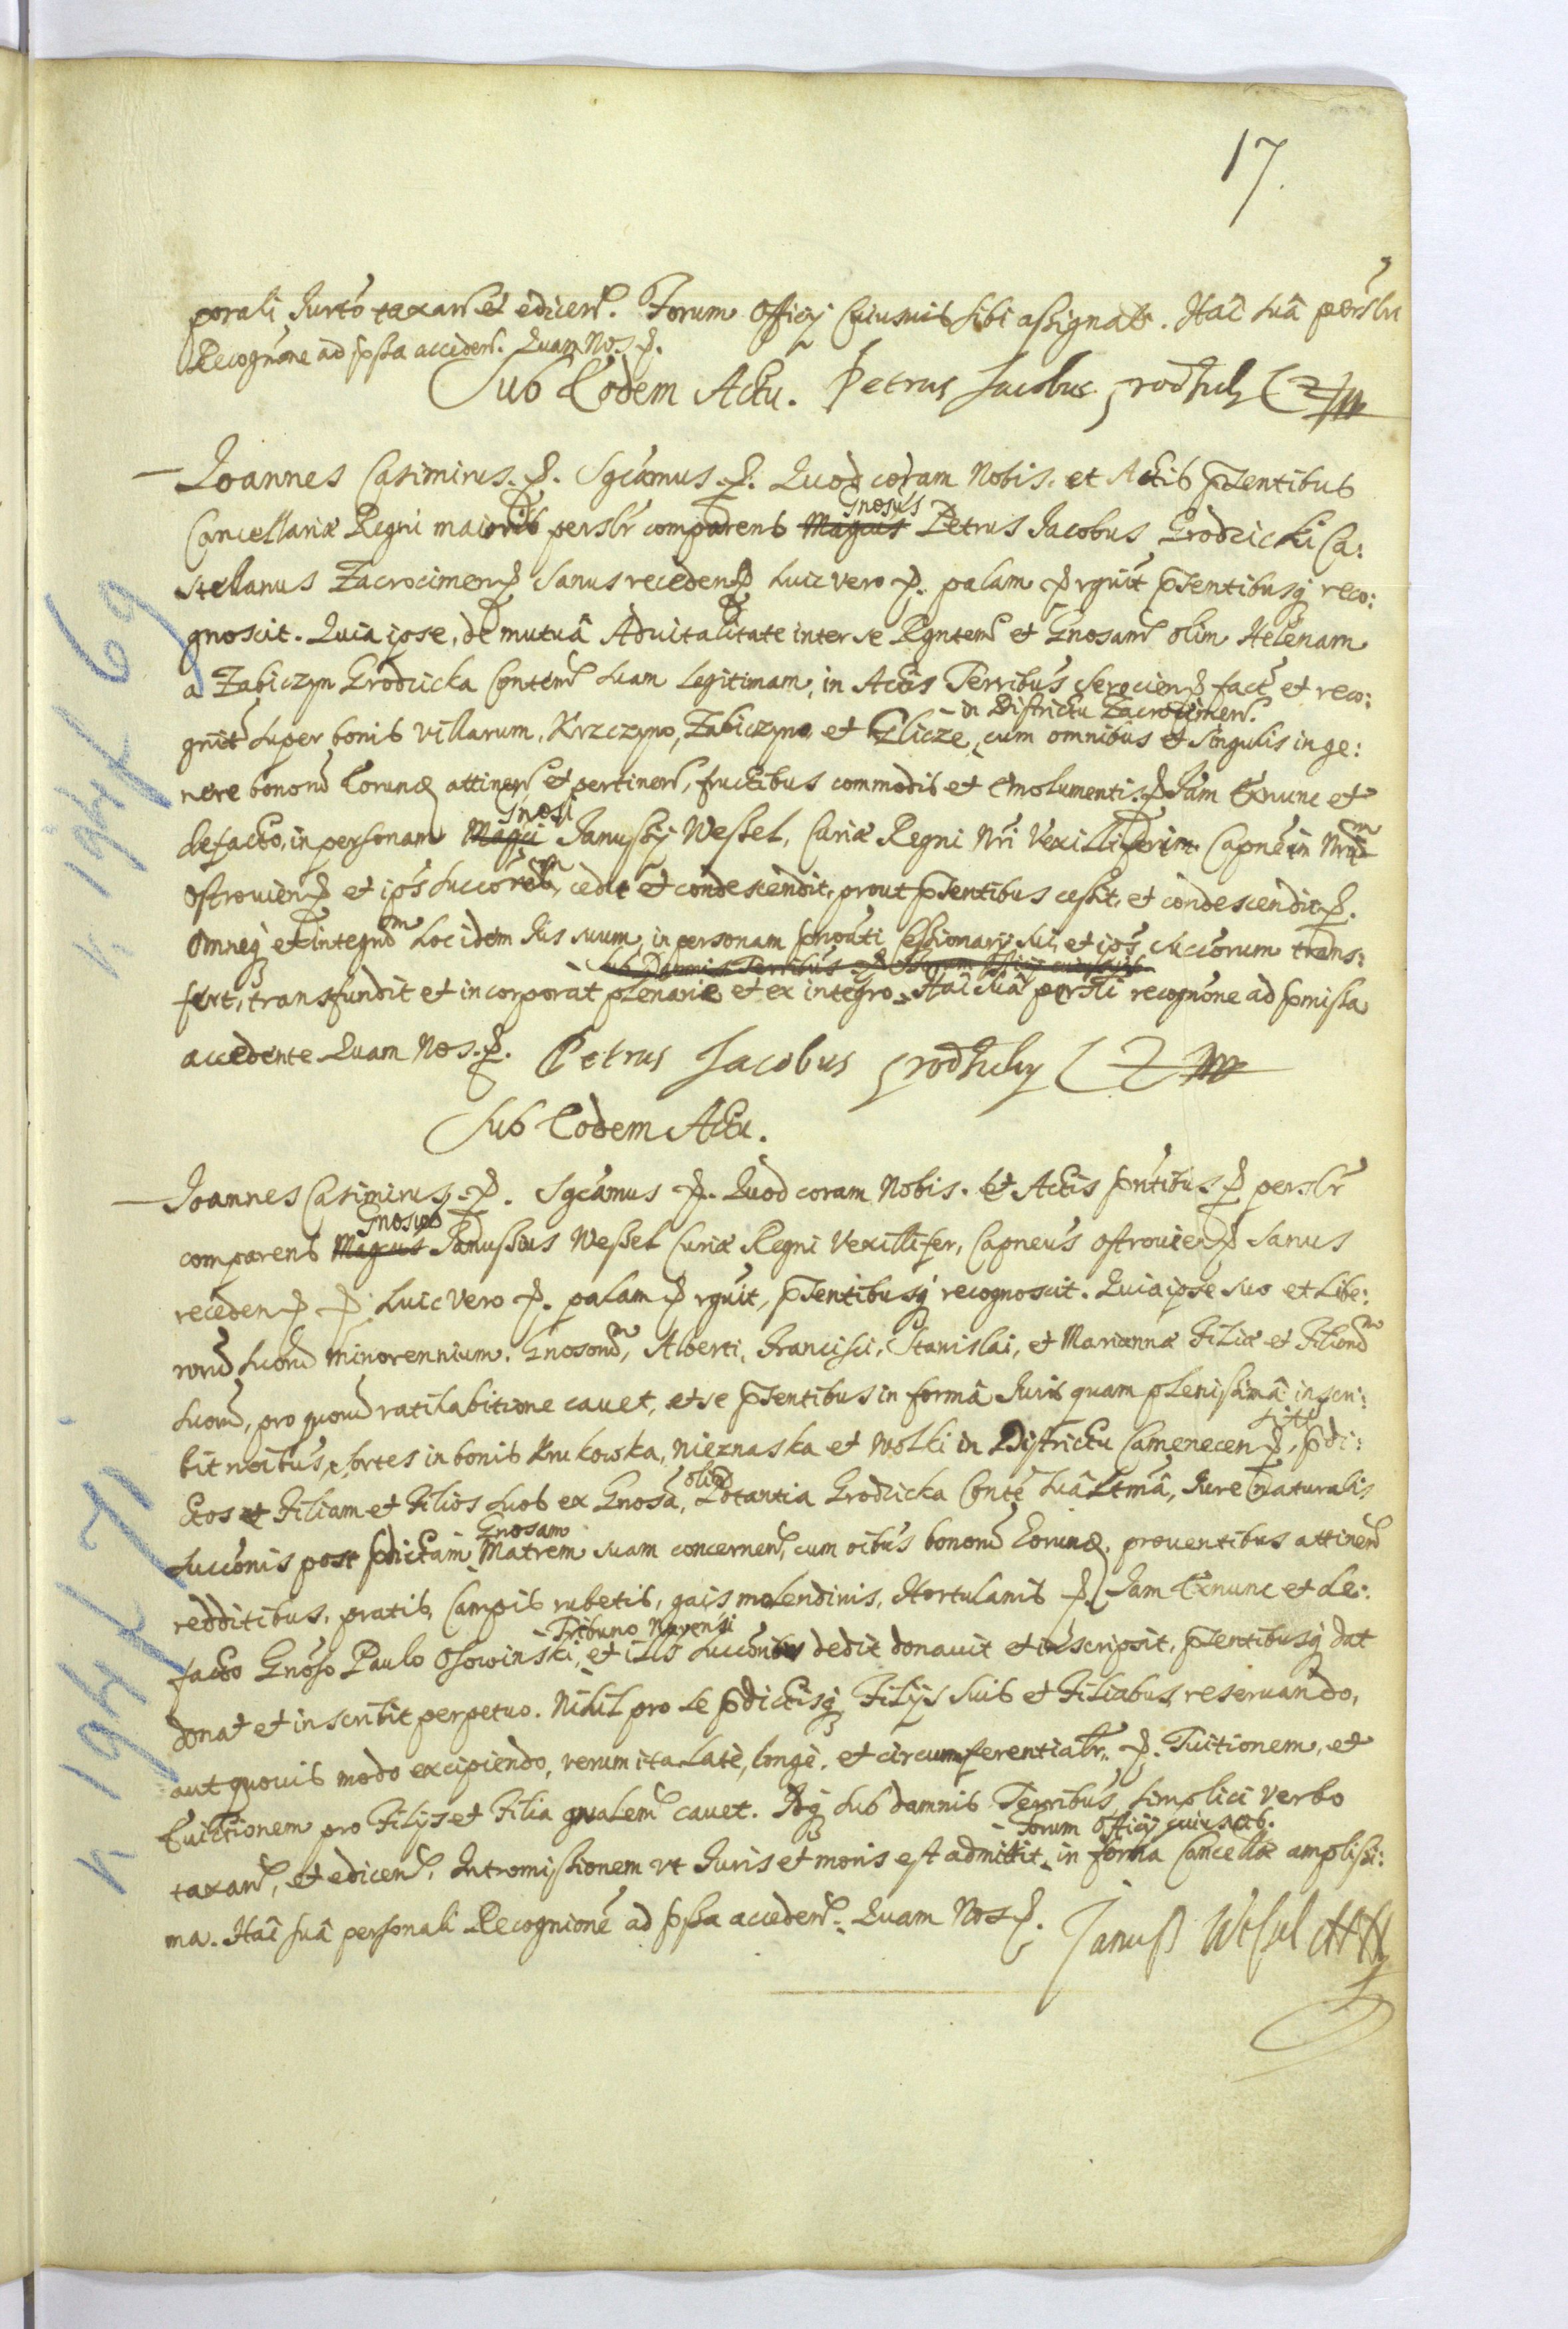 17.
porali Jurto taxan et edicen. Forum Officij Cuiusuis sibi assignate. Hac suâ perslri
Recognone ad pssa acceden. Quam Nos. p.
Sub Eodem Actu. Petrus Jacobus
Joannes Casimirus. p. Sgcamus. p. Quod coram Nobis. et Actis pntibus
Cancellariæ Regni maioris perslr comparens Magcus Gnosus Petrus Jacobus Grodzicki Ca:
stellanus Zacrocimen p sanus receden p suic vero p. palam p rgnit pntibusq reco:
gnoscit. Quia ipse, de mutuâ Aduitalitate inter se Rgntem et Gnosam olim Helenam
a Zabiczyn Grodzicka Contem suam legitimam, in Actis Terribus Serocien p fact et reco:
- in Districtu Zacrocimen.
gnit super bonis villarum, Krzczyno, Zabiczyno et Glicze, cum omnibus et singulis in ge:
nere bonor Eorunq attinen et pertinen, fructibus commodis et emolumentis. p Jam Exnunc et
defacto, in personam Magci Gnosi Janussij Wessel, Curiæ Regni Nri Vexilliferim Capnei Nri
Ostrouien p et ips succorum, cedit et condescendit, prout pntibus cessit, et condescendit p.
Omneq et integrum hoc idem Jus suum, in personam pnouti Cessionarij sui, et ips succorum trans:
Sub Damnis Terribus p Forum Officij cuiusuis
fert, transfundit et incorporat plenarie et ex integro. Hac suâ perslri recognone ad pmissa
accedente Quam Nos. p. Petrus Jacobus
Sub Eodem Actu.
Joannes Casimirus. p. Sgcamus p. Quod coram Nobis. et Actis pntibus p perslr
comparens Magcus Gnosus Janussius Wessel Curiæ Regni Vexillifer, Capneus Ostrouien p Sanus
receden p p. suic vero p. palam p rgnit, pntibusq recognoscit. Quia ipse suo et Libe:
ror suor minorennium. Gnosor, Alberti, Francisci, Stanislai, et Mariannæ Filiæ et Filior
suor, pro quor ratihabitione cauet, et se pntibus in formâ Juris quam plenissimâ inscri:
bit noibus, sortes in bonis Krukowka, Nieznaska et Wolki in Districtu Camenecen p, sitis pdi:
ctos et Filiam et Filios suos ex Gnosa, olim Potantia Grodzicka Conte suâ Ltmâ, Jure naturalis
succonis post pdictam Gnosam Matrem suam concernen, cum oibus bonor Eorunq. prouentibus attinen
redditibus, pratis, Campis rubetis, gais molendinis, Hortulanis p. Jam Exnunc et de:
- Tribuno Nurensi
facto Gnoso Paulo Osowinski, et illis succoribus dedit donauit et inscripsit, pntibusq dat
donat et inscribit perpetuo. Nihil pro se pdictisq Filijs suis et Filiabus reseruando,
aut quouis modo excipiendo, verum ita late, longe, et circumferentialr. p. Tuitionem, et
Euictionem pro Filijs et Filia qualem cauet. Idq sub damnis Terribus, simplici verbo
- Forum Officij cuiusuis.
taxan, et edicen, Intromissionem vt Juris et moris est admittit in forma Cancellæ amplissi:
ma. Hac suâ personali Recognione ad pssa acceden. Quam Nos p. Janusz Wessel
k 194 L 69
k 194 L 71